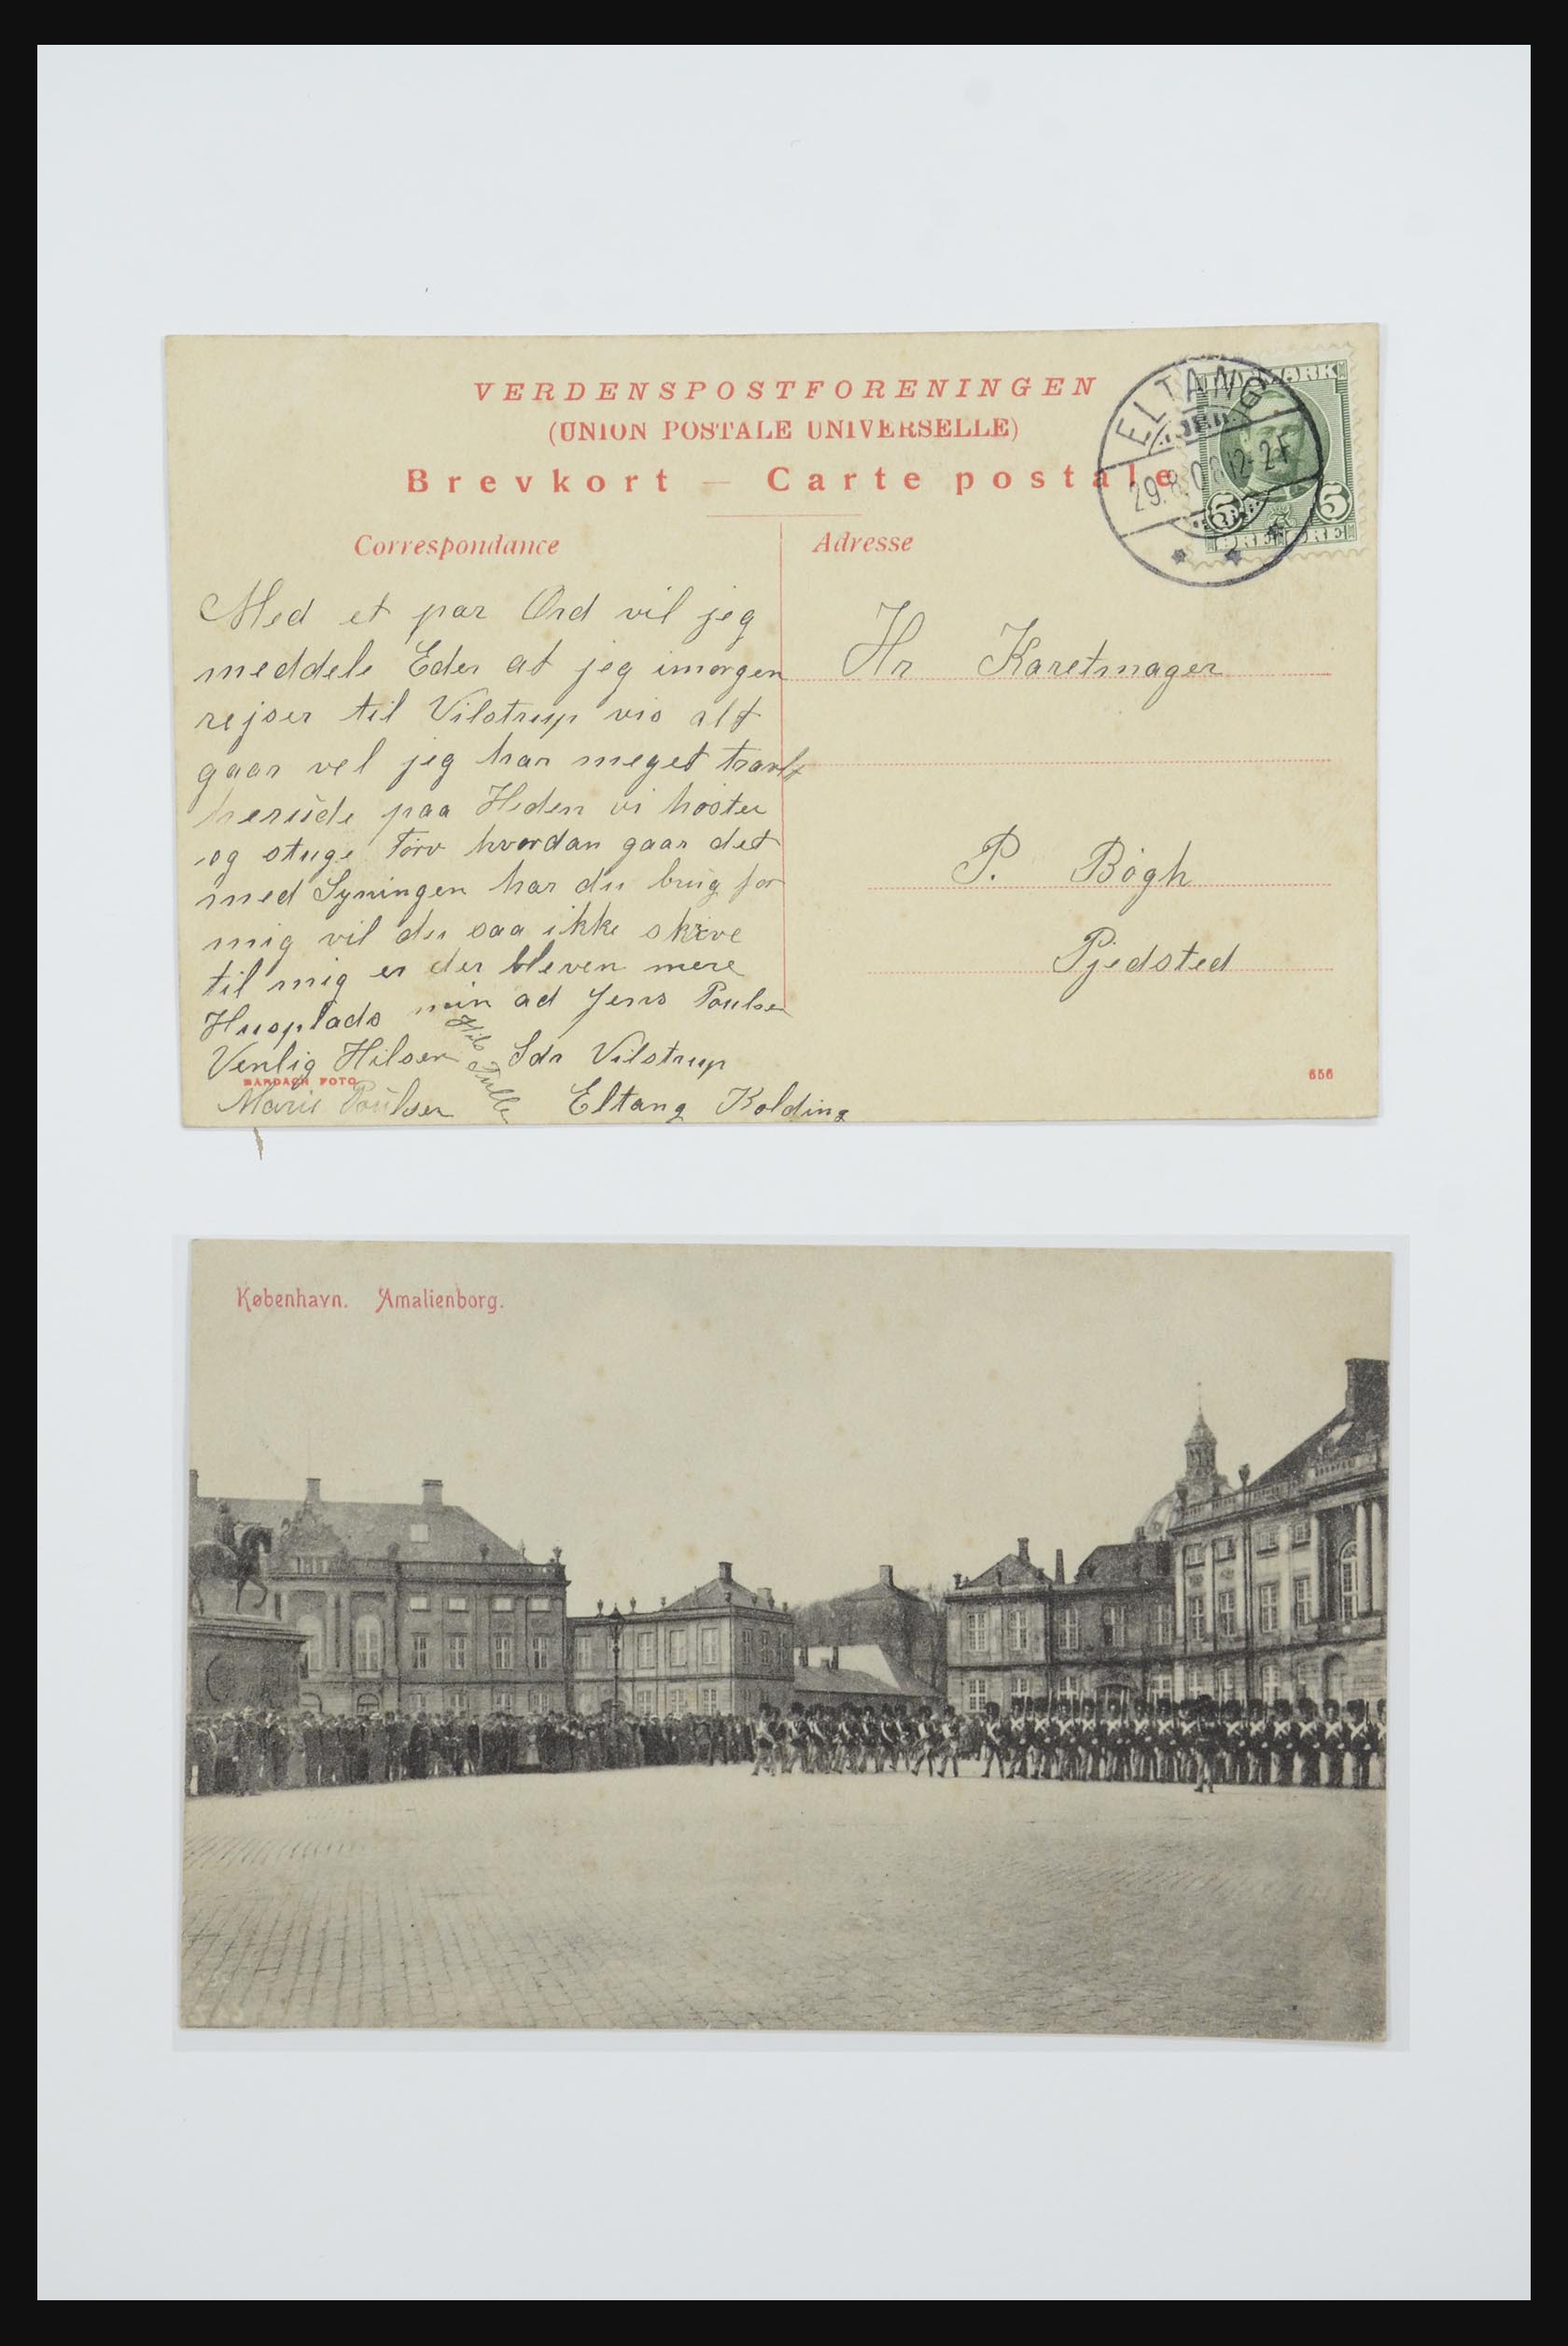 VERDENSPOSTFORENINGEN
(UNION POSTALE UNIVERSELLE)
Brevkort — Carte postale
Correspondance
Med et par Ord vil jeg
meddele Eder at jeg imorgen
rejser til Vilstrup vis alt
gaar vel jeg har meget travlt
herude paa Heden vi høster
og stuge Törv hvordan gaar det
med Syningen har du brug for
mig vil du saa ikke skive
til mig er der bleven mere
Husplads min ad Jens Poulsen
Venlig Hilsen Sdr Vilstrup
Marie Poulsen Eltang Kolding
Hils
BARDACH FOTO
Adresse
Hr Karetmager
P. Bögh
Pjedsted
656
ELTANG
29.8.08 12-2F
DANMARK
5 5
ØRE ØRE
København. Amalienborg.